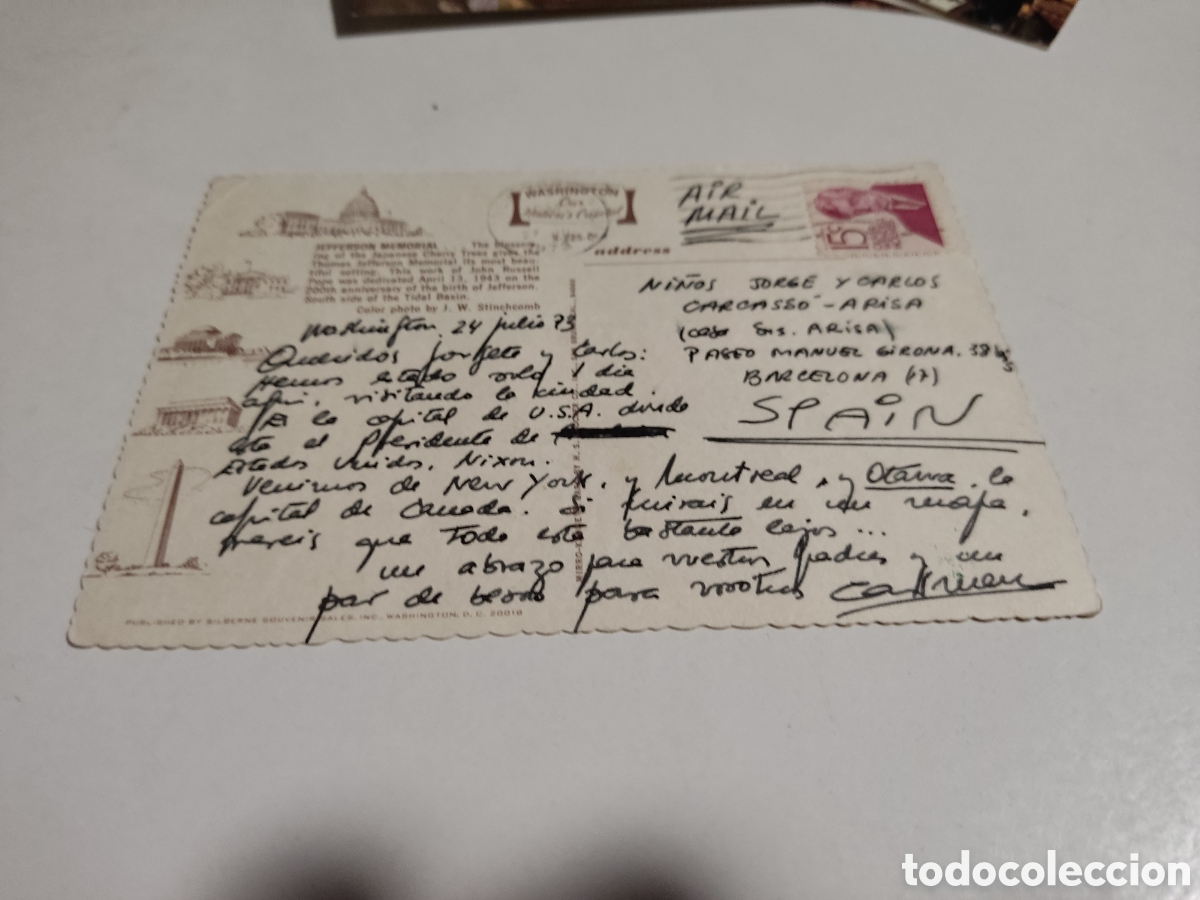 WASHINGTON
Our
Nation's Capital
AIR
MAIL
15c
address
JEFFERSON MEMORIAL . . . The blossom-
ing of the Japanese Cherry Trees gives the
Thomas Jefferson Memorial its most beau-
tiful setting. This work of John Russell
Pope was dedicated April 13, 1943 on the
200th anniversary of the birth of Jefferson.
South side of the Tidal Basin.
Color photo by J. W. Stinchcomb
NIÑOS JORGE Y CARLOS
CARCASSÓ - ARISA
(casa Srs. ARISA)
PASEO MANUEL GIRONA. 38
BARCELONA (17)
SPAIN
Washington, 24 julio 73
Queridos Jorgete y Carlos:
Hemos estado solo 1 día
aquí, visitando la ciudad.
Es la capital de U.S.A. donde
está el Presidente de
Estados Unidos, Nixon.
Venimos de New York, y Montreal, y Otawa, la
capital de Canada. Si mirais en un mapa,
vereis que Todo está bastante lejos...
un abrazo para vuestros padres y un
par de besos para vosotros Carmen
PUBLISHED BY SILBERNE SOUVENIR SALES, INC., WASHINGTON, D. C. 20018
todocoleccion